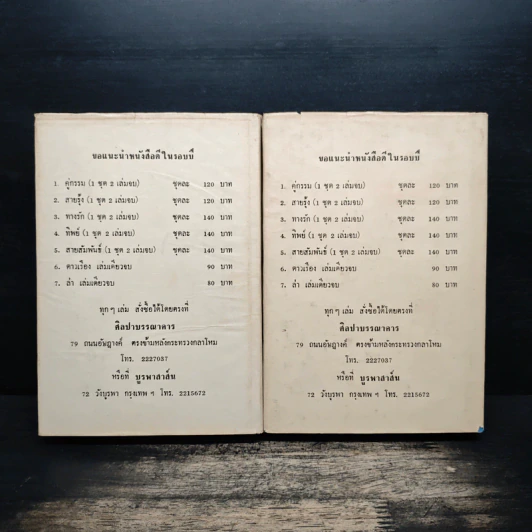 ขอแนะนำหนังสือดีในรอบปี
1. คู่กรรม (1 ชุด 2 เล่มจบ) ชุดละ 120 บาท
2. สายรุ้ง (1 ชุด 2 เล่มจบ) ชุดละ 120 บาท
3. ทางรัก (1 ชุด 2 เล่มจบ) ชุดละ 140 บาท
4. ทิพย์ (1 ชุด 2 เล่มจบ) ชุดละ 140 บาท
5. สายสัมพันธ์ (1 ชุด 2 เล่มจบ) ชุดละ 140 บาท
6. ดาวเรือง เล่มเดียวจบ 90 บาท
7. ล่า เล่มเดียวจบ 80 บาท
ทุกๆ เล่ม สั่งซื้อได้โดยตรงที่
ศิลปาบรรณาคาร
79 ถนนอัษฎางค์ ตรงข้ามหลังกระทรวงกลาโหม
โทร. 2227037
หรือที่ บูรพาสาส์น
72 วังบูรพา กรุงเทพ ฯ โทร. 2215672
ขอแนะนำหนังสือดีในรอบปี
1. คู่กรรม (1 ชุด 2 เล่มจบ) ชุดละ 120 บาท
2. สายรุ้ง (1 ชุด 2 เล่มจบ) ชุดละ 120 บาท
3. ทางรัก (1 ชุด 2 เล่มจบ) ชุดละ 140 บาท
4. ทิพย์ (1 ชุด 2 เล่มจบ) ชุดละ 140 บาท
5. สายสัมพันธ์ (1 ชุด 2 เล่มจบ) ชุดละ 140 บาท
6. ดาวเรือง เล่มเดียวจบ 90 บาท
7. ล่า เล่มเดียวจบ 80 บาท
ทุกๆ เล่ม สั่งซื้อได้โดยตรงที่
ศิลปาบรรณาคาร
79 ถนนอัษฎางค์ ตรงข้ามหลังกระทรวงกลาโหม
โทร. 2227037
หรือที่ บูรพาสาส์น
72 วังบูรพา กรุงเทพ ฯ โทร. 2215672